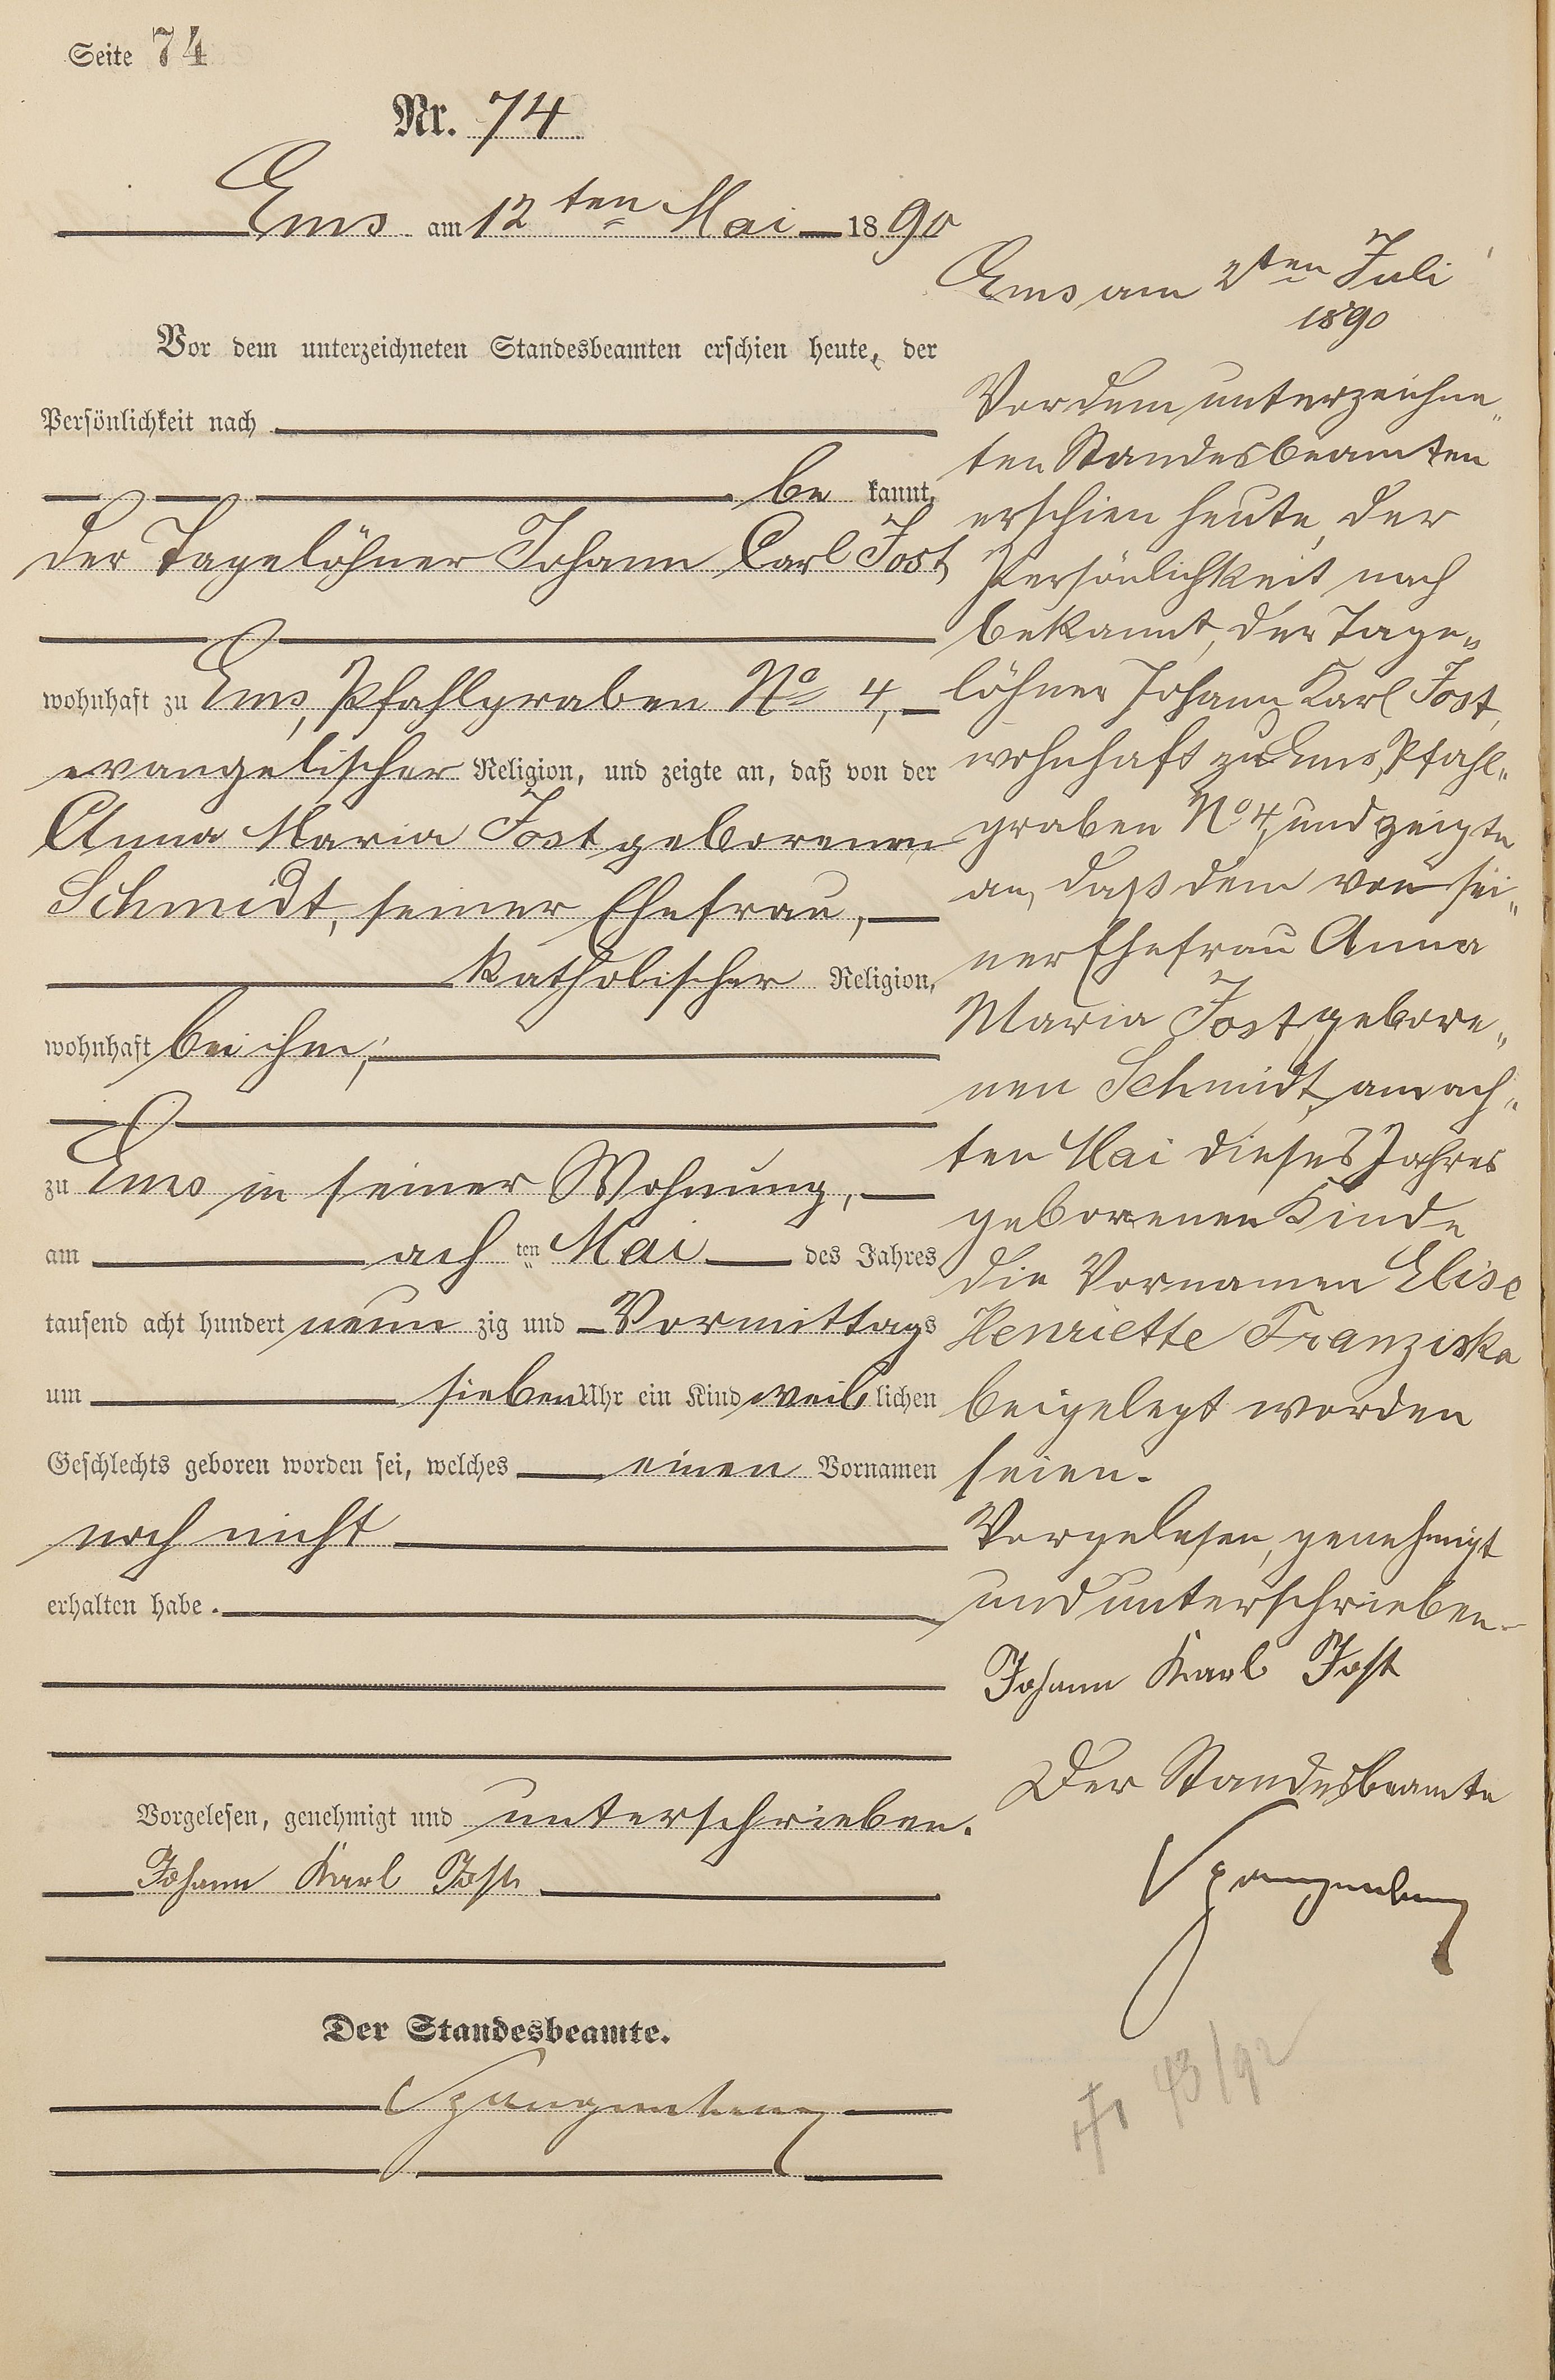 Seite 74
Nr. 74
Ems am 12ten Mai 1890
Vor dem unterzeichneten Standesbeamten erschien heute, der
Persönlichkeit nach
be kannt,
der Tagelöhner Johann Carl Jost,
wohnhaft zu Ems, Pfahlgraben No 4,
evangelischer Religion, und zeigte an, daß von der
Anna Maria Jost geborenen
Schmidt, seiner Ehefrau,
katholischer Religion,
wohnhaft bei ihm,
zu Ems in seiner Wohnung,
am ach ten Mai des Jahres
tausend acht hundert neun zig und Vormittags
um sieben Uhr ein Kind weib lichen
Geschlechts geboren worden sei, welches einen Vornamen
noch nicht
erhalten habe.
Vorgelesen, genehmigt und unterschrieben.
Johann Karl Jost
Der Standesbeamte.
Spangenberg
Ems am 2ten Juli
1890
Vor dem unterzeichne„
ten Standesbeamten
erschien heute, der
Persönlichkeit nach
bekannt, der Tage„
löhner Johann Karl Jost,
wohnhaft zu Ems, Pfahl„
graben No 4, und zeigte
an, daß dem von sei„
ner Ehefrau Anna
Maria Jost gebore„
nen Schmidt, am ach„
ten Mai dieses Jahres
geborenen Kinde
die Vornamen Elise
Henriette Franziska
beigelegt worden
seien.
Vorgelesen, genehmigt
und unterschrieben.
Johann Karl Jost
Der Standesbeamte
Spangenberg
† 43/92